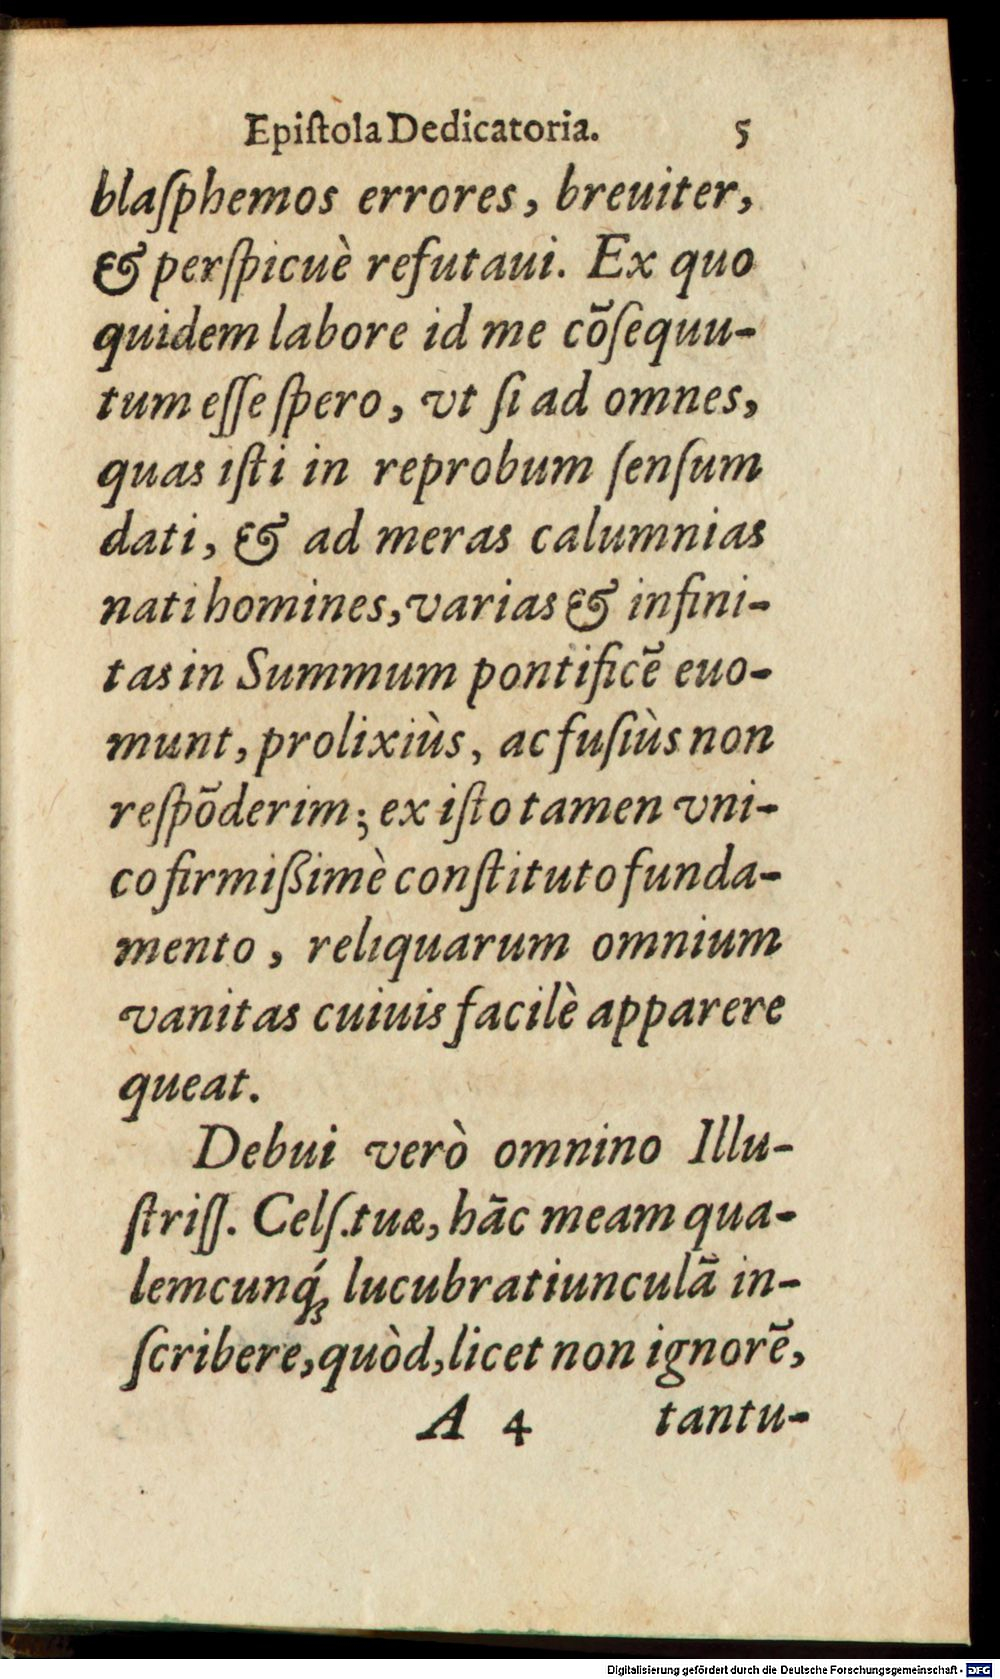 Epiſtola Dedicatoria. 5
blaſphemos errores, breuiter,
& perſpicuè refutaui. Ex quo
quidem labore id me cõſequu-
tum eſſe ſpero, vt ſi ad omnes,
quas iſti in reprobum ſenſum
dati, & ad meras calumnias
nati homines, varias & infini-
tas in Summum pontificẽ euo-
munt, prolixiùs, ac fuſiùs non
reſpõderim; ex iſto tamen vni-
co firmißimè conſtituto funda-
mento, reliquarum omnium
vanitas cuiuis facilè apparere
queat.
Debui verò omnino Illu-
ſtriſſ. Celſ. tuæ, hãc meam qua-
lemcunq́ꝫ lucubratiunculã in-
ſcribere, quòd, licet non ignorẽ,
A 4 tantu-
Digitalisierung gefördert durch die Deutsche Forschungsgemeinschaft - DFG